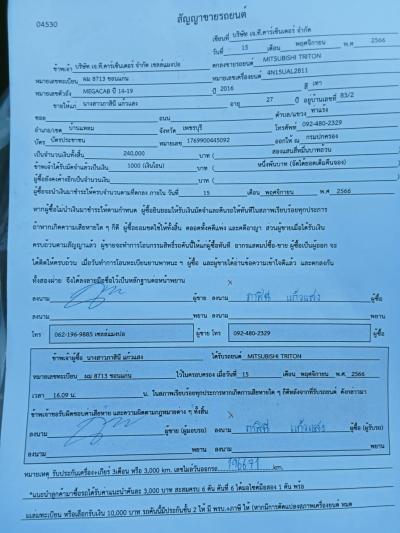 สัญญาขายรถยนต์
04530
เขียนที่ บริษัท เจ.ที.คาร์เซ็นเตอร์ จำกัด
วันที่ 15 เดือน พฤศจิกายน พ.ศ 2566
ข้าพเจ้า บริษัท เจ.ที.คาร์เซ็นเตอร์ จำกัด เซลล์แมงปอ ตกลงขายรถยนต์ MITSUBISHI TRITON
หมายเลขทะเบียน ผม 8713 ขอนแก่น หมายเลขเครื่องยนต์ 4N15UAL2811
หมายเลขตัวถัง MEGACAB ปี 14-19 ปี 2016 สี เทา
ขายให้แก่ นางสาวภาสินี แก้วแสง อายุ 27 ปี อยู่บ้านเลขที่ 83/2
ซอย ถนน ตำบล/แขวง ท่าแร้ง
อำเภอ/เขต บ้านแหลม จังหวัด เพชรบุรี โทรศัพท์ 092-480-2329
บัตร บัตรประชาชน หมายเลข 1769900445092 ออกให้ ณ กรมปกครอง
เป็นจำนวนเงินทั้งสิ้น 240,000 บาท ( สองแสนสี่หมื่นบาทถ้วน )
ข้าพเจ้าได้รับมัดจำแล้วเป็นเงิน 1000 (เงินโอน) บาท ( หนึ่งพันบาท (จัดได้ยอดเต็มคืนจอง) )
ผู้ซื้อยังคงค้างอีกเป็นจำนวนเงิน บาท ( )
ผู้ซื้อจะนำเงินมาชำระให้ครบจำนวนตามที่ตกลง ภายใน วันที่ 15 เดือน พฤศจิกายน พ.ศ 2566
หากผู้ซื้อไม่นำเงินมาชำระตามกำหนด ผู้ซื้อยินยอมให้ริบเงินมัดจำและคืนรถให้ทันทีในสภาพเรียบร้อยทุกประการ
ถ้าหากเกิดความเสียหายใด ๆ ก็ดี ผู้ซื้อยอมชดใช้ให้ทั้งสิ้น ตลอดทั้งคดีแพ่ง และคดีอาญา ส่วนผู้ขายเมื่อได้รับเงิน
ครบถ้วนตามสัญญาแล้ว ผู้ขายจะทำการโอนกรรมสิทธิ์รถคันนี้ให้แก่ผู้ซื้อทันที อากรแสตมป์ซื้อ-ขาย ผู้ซื้อเป็นผู้ออก จะ
ได้ติดให้ครบถ้วน เมื่อวันทำการโอนทะเบียนยานพาหนะ ฯ ผู้ซื้อ และผู้ขายได้อ่านข้อความเข้าใจดีแล้ว และตกลงกัน
ทั้งสองฝ่าย จึงได้ลงลายมือชื่อไว้เป็นหลักฐานต่อหน้าพยาน
ลงนาม ผู้ขาย ลงนาม ภาสินี แก้วแสง ผู้ซื้อ
ลงนาม พยาน ลงนาม พยาน
โทร 062-196-9885 เซลล์แมงปอ ผู้ขาย โทร 092-480-2329 ผู้ซื้อ
ข้าพเจ้าผู้ซื้อ นางสาวภาสินี แก้วแสง ได้รับรถยนต์ MITSUBISHI TRITON
หมายเลขทะเบียน ผม 8713 ขอนแก่น ไว้ในครอบครอง เมื่อวันที่ 15 เดือน พฤศจิกายน พ.ศ. 2566
เวลา 16.09 น. น. ในสภาพเรียบร้อยทุกประการหากเกิดการเสียหายใด ๆ ก็ดีหลังจากที่รับรถยนต์ ดังกล่าวมา
ข้าพเจ้าขอรับผิดชอบค่าเสียหาย และความผิดตามกฎหมายต่าง ๆ ทั้งสิ้น
ลงนาม ผู้ขาย (ผู้มอบรถ) ลงนาม ภาสินี แก้วแสง ผู้ซื้อ (ผู้รับรถ)
ลงนาม พยาน ลงนาม พยาน
หมายเหตุ รับประกันเครื่อง+เกียร์ 3เดือน หรือ 3,000 km. เลขไมล์วันออกรถ 196671 km.
*แนะนำลูกค้ามาซื้อรถได้รับค่าแนะนำคันละ 3,000 บาท สะสมครบ 6 คัน คันที่ 6 ได้มอไซค์มือสอง 1 คัน พร้อ
แถมทะเบียน หรือเลือกรับเงิน 10,000 บาท รถคันนี้มีประกันชั้น 2 ให้ มี พรบ.+ภาษี ให้ (หากมีการดัดแปลงสภาพเครื่องยนต์ หมด